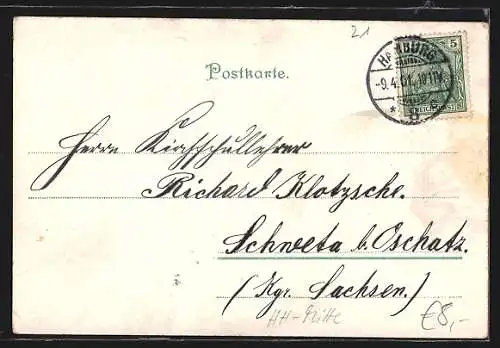 21
HAMBURG
5
-9.4.01. 10-11V.
* 8
REICHSPOST
Postkarte.
Herrn Kirchschullehrer
Richard Klotzsche.
Schweta b. Oschatz.
(Kgr. Sachsen.)
HH-Mitte
€8,-